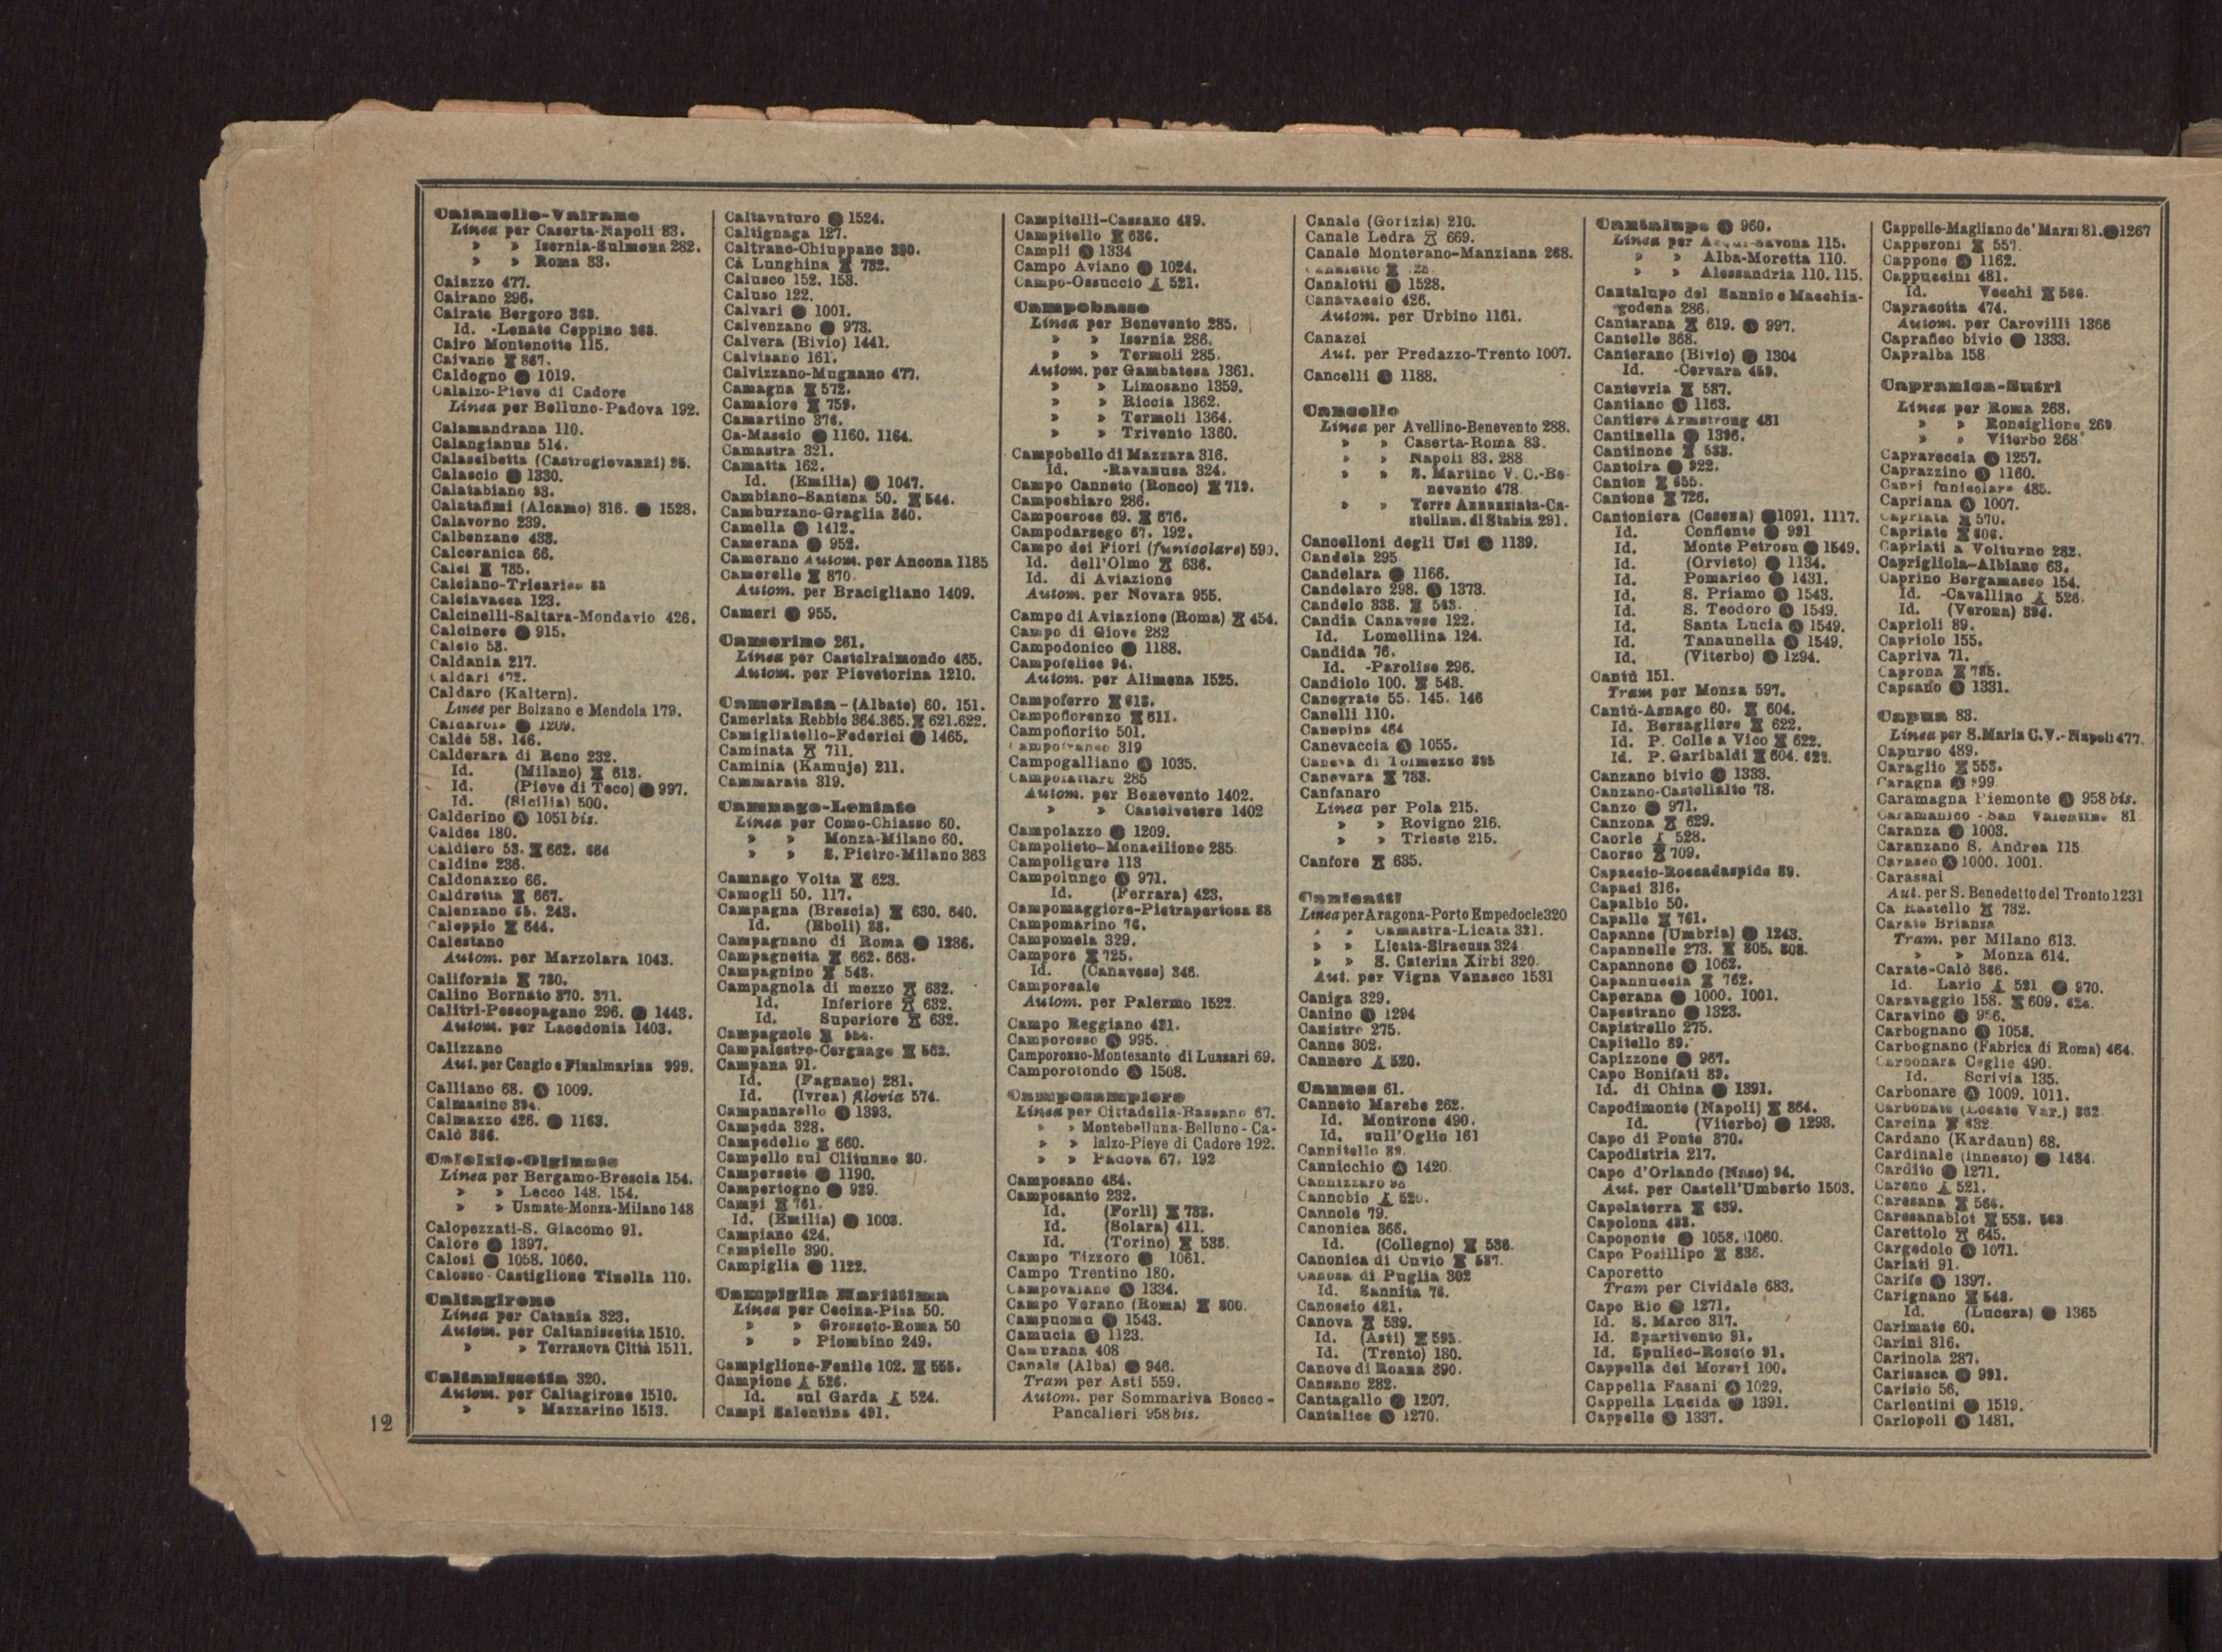 Caianello-Vairano
Linea per Caserta-Napoli 83.
» » Isernia-Sulmona 282.
» » Roma 83.
Caiazzo 477.
Cairano 296.
Cairate Bergoro 368.
Id. -Lonate Ceppino 368.
Cairo Montenotte 115.
Caivano 867.
Caldogno 1019.
Calalzo-Pieve di Cadore
Linea per Belluno-Padova 192.
Calamandrana 110.
Calangianus 514.
Calascibetta (Castrogiovanni) 95.
Calascio 1330.
Calatabiano 93.
Calatafimi (Alcamo) 316. 1528.
Calavorno 239.
Calbenzano 433.
Calceranica 66.
Calci 785.
Calciano-Tricarico 88
Calciavacca 123.
Calcinelli-Saltara-Mondavio 426.
Calcinere 915.
Calcio 53.
Caldania 217.
Caldari 472.
Caldaro (Kaltern).
Linea per Bolzano e Mendola 179.
Caldarola 1209.
Caldè 58. 146.
Calderara di Reno 232.
Id. (Milano) 613.
Id. (Pieve di Teco) 997.
Id. (Sicilia) 500.
Calderino A 1051 bis.
Caldes 180.
Caldiero 53. 662. 664
Caldine 236.
Caldonazzo 66.
Caldretta 667.
Calenzano 65. 243.
Caleppio 644.
Calestano
Autom. per Marzolara 1043.
California 730.
Calino Bornato 370. 371.
Calitri-Pescopagano 296. 1443.
Autom. per Lacedonia 1403.
Calizzano
Aut. per Cengio e Finalmarina 999.
Calliano 68. A 1009.
Calmasino 394.
Calmazzo 426. 1163.
Calò 366.
Calolzio-Olginate
Linea per Bergamo-Brescia 154.
» » Lecco 148. 154.
» » Usmate-Monza-Milano 148
Calopezzati-S. Giacomo 91.
Calore A 1397.
Calosi 1058. 1060.
Calosso-Castiglione Tinella 110.
Caltagirone
Linea per Catania 323.
Autom. per Caltanissetta 1510.
» » Terranova Città 1511.
Caltanissetta 320.
Autom. per Caltagirone 1510.
» » Mazzarino 1513.
12
Caltavuturo 1524.
Caltignaga 127.
Caltrano-Chiuppano 390.
Cà Lunghina 732.
Calusco 152. 153.
Caluso 122.
Calvari 1001.
Calvenzano 973.
Calvera (Bivio) 1441.
Calvisano 161.
Calvizzano-Mugnano 477.
Camagna 572.
Camaiore 759.
Camartino 376.
Ca-Mascio 1160. 1164.
Camastra 321.
Camatta 162.
Id. (Emilia) 1047.
Cambiano-Santena 50. 544.
Camburzano-Graglia 340.
Camella 1412.
Camerana 952.
Camerano Autom. per Ancona 1185
Camerelle 870.
Autom. per Bracigliano 1409.
Cameri 955.
Camerino 261.
Linea per Castelraimondo 465.
Autom. per Pievetorina 1210.
Camerlata - (Albate) 60. 151.
Camerlata Rebbio 364.365. 621.622.
Camigliatello-Federici 1465.
Caminata 711.
Caminia (Kamuje) 211.
Cammarata 319.
Camnago-Lentate
Linea per Como-Chiasso 60.
» » Monza-Milano 60.
» » S. Pietro-Milano 363
Camnago Volta 623.
Camogli 50. 117.
Campagna (Brescia) 630. 640.
Id. (Eboli) 88.
Campagnano di Roma 1286.
Campagnetta 662. 663.
Campagnino 543.
Campagnola di mezzo 632.
Id. Inferiore 632.
Id. Superiore 632.
Campagnole
Campalestro-Cergnago 562.
Campana 91.
Id. (Fagnano) 281.
Id. (Ivrea) filovia 574.
Campanarello 1393.
Campeda 328.
Campedello 660.
Campello sul Clitunno 80.
Camperseto 1190.
Campertogno 939.
Campi 761.
Id. (Emilia) 1003.
Campiano 424.
Campiello 390.
Campiglia 1122.
Campiglia Marittima
Linea per Cecina-Pisa 50.
» » Grosseto-Roma 50
» » Piombino 249.
Campiglione-Fenile 102. 555.
Campione 526.
Id. sul Garda 524.
Campi Salentina 491.
Campitelli-Cassano 489.
Campitello 636.
Campli 1334
Campo Aviano 1024.
Campo-Ossuccio 521.
Campobasso
Linea per Benevento 285.
» » Isernia 286.
» » Termoli 285.
Autom. per Gambatesa 1361.
» » Limosano 1359.
» » Riccia 1362.
» » Termoli 1364.
» » Trivento 1360.
Campobello di Mazzara 316.
Id. -Ravanusa 324.
Campo Canneto (Ronco) 719.
Campochiaro 286.
Campocroce 69. 676.
Campodarsego 67. 192.
Campo dei Fiori (funicolare) 590.
Id. dell'Olmo 636.
Id. di Aviazione
Autom. per Novara 955.
Campo di Aviazione (Roma) 454.
Campo di Giove 282
Campodonico 1188.
Campofelice 94.
Autom. per Alimena 1525.
Campoferro 613.
Campoflorenzo 611.
Campoflorito 501.
Campofranco 319
Campogalliano A 1035.
Campolattaro 285
Autom. per Benevento 1402.
» » Castelvetere 1402
Campolazzo 1209.
Campolieto-Monacilione 285.
Campoligure 113
Campolungo A 971.
Id. (Ferrara) 423.
Campomaggiore-Pietrapertosa 88
Campomarino 76.
Campomela 329.
Campore 725.
Id. (Canavese) 346.
Camporeale
Autom. per Palermo 1522.
Campo Reggiano 421.
Camporosso A 995.
Camporosso-Montesanto di Lussari 69.
Camporotondo A 1508.
Camposampiero
Linea per Cittadella-Bassano 67.
» » Montebelluna-Belluno-Ca-
» » lalzo-Pieve di Cadore 192.
» » Padova 67. 192
Camposano 484.
Camposanto 232.
Id. (Forlì) 733.
Id. (Solara) 411.
Id. (Torino) 535.
Campo Tizzoro 1061.
Campo Trentino 180.
Campovalano A 1334.
Campo Verano (Roma) 800.
Campuomu 1543.
Camucia A 1123.
Camurana 408
Canale (Alba) 946.
Tram per Asti 559.
Autom. per Sommariva Bosco-
Pancalieri 958 bis.
Canale (Gorizia) 210.
Canale Ledra 669.
Canale Monterano-Manziana 268.
Canaletto
Canalotti 1528.
Canavaccio 426.
Autom. per Urbino 1161.
Canazei
Aut. per Predazzo-Trento 1007.
Cancelli A 1188.
Cancello
Linea per Avellino-Benevento 288.
» » Caserta-Roma 83.
» » Napoli 83. 288
» » S. Martino V. C.-Be-
nevento 478
» » Torre Annunziata-Ca-
stellam. di Stabia 291.
Cancelloni degli Usi 1139.
Candela 295.
Candelara 1166.
Candelaro 298. 1373.
Candelo 338. 583.
Candia Canavese 122.
Id. Lomellina 124.
Candida 76.
Id. -Parolise 296.
Candiolo 100. 543.
Canegrate 55. 145. 146
Canelli 110.
Canepina 464
Canevaccia A 1055.
Caneva di Tolmezzo 395
Canevara 783.
Canfanaro
Linea per Pola 215.
» » Rovigno 216.
» » Trieste 215.
Canfore 635.
Canicattì
Linea per Aragona-Porto Empedocle 320
» » Camastra-Licata 321.
» » Licata-Siracusa 324.
» » S. Caterina Xirbi 320.
Aut. per Vigna Vanasco 1531
Caniga 329.
Canino A 1294
Canistro 275.
Canne 302.
Cannero 520.
Cannes 61.
Canneto Marche 262.
Id. Montrone 490.
Id. sull'Oglio 161
Cannitello 89.
Cannicchio A 1420
Cannizzaro 93
Cannobio 520.
Cannole 79.
Canonica 366.
Id. (Collegno) 536.
Canonica di Cuvio 587.
Canosa di Puglia 302
Id. Sannita 76.
Canoscio 421.
Canova 539.
Id. (Asti) 595.
Id. (Trento) 180.
Canove di Roana 390.
Cansano 282.
Cantagallo 1207.
Cantalice 1270.
Cantalupo A 960.
Linea per Acqui-Savona 115.
» » Alba-Moretta 110.
» » Alessandria 110. 115.
Cantalupo del Sannio e Macchia-
godena 286.
Cantarana 619. 997.
Cantello 368.
Canterano (Bivio) 1304
Id. -Cervara 459.
Cantevria 587.
Cantiano 1163.
Cantiere Armstrong 481
Cantinella 1396.
Cantinone 533.
Cantoira 922.
Canton 655.
Cantone 726.
Cantoniera (Cesena) 1091. 1117.
Id. Confiente 991
Id. Monte Petrosu 1549.
Id. (Orvieto) 1134.
Id. Pomarico 1431.
Id. S. Priamo A 1543.
Id. S. Teodoro A 1549.
Id. Santa Lucia A 1549.
Id. Tanaunella A 1549.
Id. (Viterbo) 1294.
Cantù 151.
Tram per Monza 597.
Cantù-Asnago 60. 604.
Id. Bersagliere 622.
Id. P. Colle a Vico 622.
Id. P. Garibaldi 604. 622.
Canzano bivio 1333.
Canzano-Castellalto 78.
Canzo 971.
Canzona 629.
Caorle 528.
Caorso 709.
Capaccio-Roccadaspide 89.
Capaci 316.
Capalbio 50.
Capalle 761.
Capanne (Umbria) 1243.
Capannelle 273. 805. 808.
Capannone 1062.
Capannuccia 762.
Caperana 1000. 1001.
Capestrano 1323.
Capistrello 275.
Capitello 89.
Capizzone 967.
Capo Bonifati 89.
Id. di China 1391.
Capodimonte (Napoli) 864.
Id. (Viterbo) 1293.
Capo di Ponte 370.
Capodistria 217.
Capo d'Orlando (Naso) 94.
Aut. per Castell'Umberto 1503.
Capolaterra 639.
Capolona 433.
Capoponte 1058. 1060.
Capo Posillipo 836.
Caporetto
Tram per Cividale 683.
Capo Rio 1271.
Id. S. Marco 317.
Id. Spartivento 91.
Id. Spulico-Roscio 91.
Cappella dei Moreri 100.
Cappella Fasani A 1029.
Cappella Lucida 1391.
Cappelle 1337.
Cappelle-Magliano de' Marsi 81. 1267
Capperoni 557.
Cappone A 1162.
Cappuccini 481.
Id. Vecchi 566.
Capracotta 474.
Autom. per Carovilli 1366
Caprafico bivio 1333.
Capralba 158
Capranica-Sutri
Linea per Roma 268.
» » Ronciglione 269
» » Viterbo 268
Caprareccia A 1257.
Caprazzino A 1160.
Capri funicolare 485.
Capriana A 1007.
Capriata 570.
Capriate 606.
Capriati a Volturno 282.
Caprigliola-Albiano 63.
Caprino Bergamasco 154.
Id. -Cavallino 526.
Id. (Verona) 394.
Caprioli 89.
Capriolo 155.
Capriva 71.
Caprona 785.
Capsano 1331.
Capua 83.
Linea per S. Maria C. V.-Napoli 477.
Capurso 489.
Caraglio 553.
Caragna A 999
Caramagna Piemonte A 958 bis.
Caramanico-San Valentino 81
Caranza 1003.
Caranzano S. Andrea 115
Carasco A 1000. 1001.
Carassai
Aut. per S. Benedetto del Tronto 1231
Ca Rastello 732.
Carate Brianza
Tram. per Milano 613.
» » Monza 614.
Carate-Calò 366.
Id. Lario 521 970.
Caravaggio 158. 609. 624.
Caravino A 956.
Carbognano A 1053.
Carbognano (Fabrica di Roma) 464.
Carbonara Ceglie 490.
Id. Scrivia 135.
Carbonare A 1009. 1011.
Carbonate (Locate Var.) 362
Carcina 632.
Cardano (Kardaun) 68.
Cardinale (Innesto) 1484.
Cardito 1271.
Careno 521.
Caresana 566.
Caresanablot 558. 563
Carettolo 645.
Cargedolo A 1071.
Cariati 91.
Carife A 1397.
Carignano 543.
Id. (Lucera) 1365
Carimate 60.
Carini 316.
Carinola 287.
Carisasca 991.
Carisio 56.
Carlentini 1519.
Carlopoli A 1481.